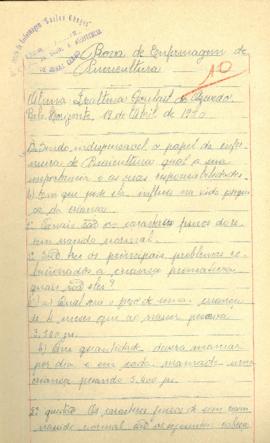 Prova de Enfermagem de
Puericultura
10
Aluna Isaltina Goulart de Azevedo
Belo Horizonte, 12 de Abril de 1950
1) Sendo indispensavel o papel da enfer-
meira de Puericultura qual a sua
importancia e as suas responsabilidades.
b) Em que pode ela influir na vida
ca da criança.
1ª Quais são os caracteres do re-
cem nascido normal.
2. São tres os principais problemas re-
lacionados a criança prematura
quais são eles?
a) Qual será o peso de uma criança
de 4 meses que ao nascer pesava
3.300 gr.
b) Em quantidade devera mamar
por dia e em cada mamada uma
criança pesando 5.400 gr.
2ª questão Os caracteres de um recem
nascido normal são os seguintes cabeça